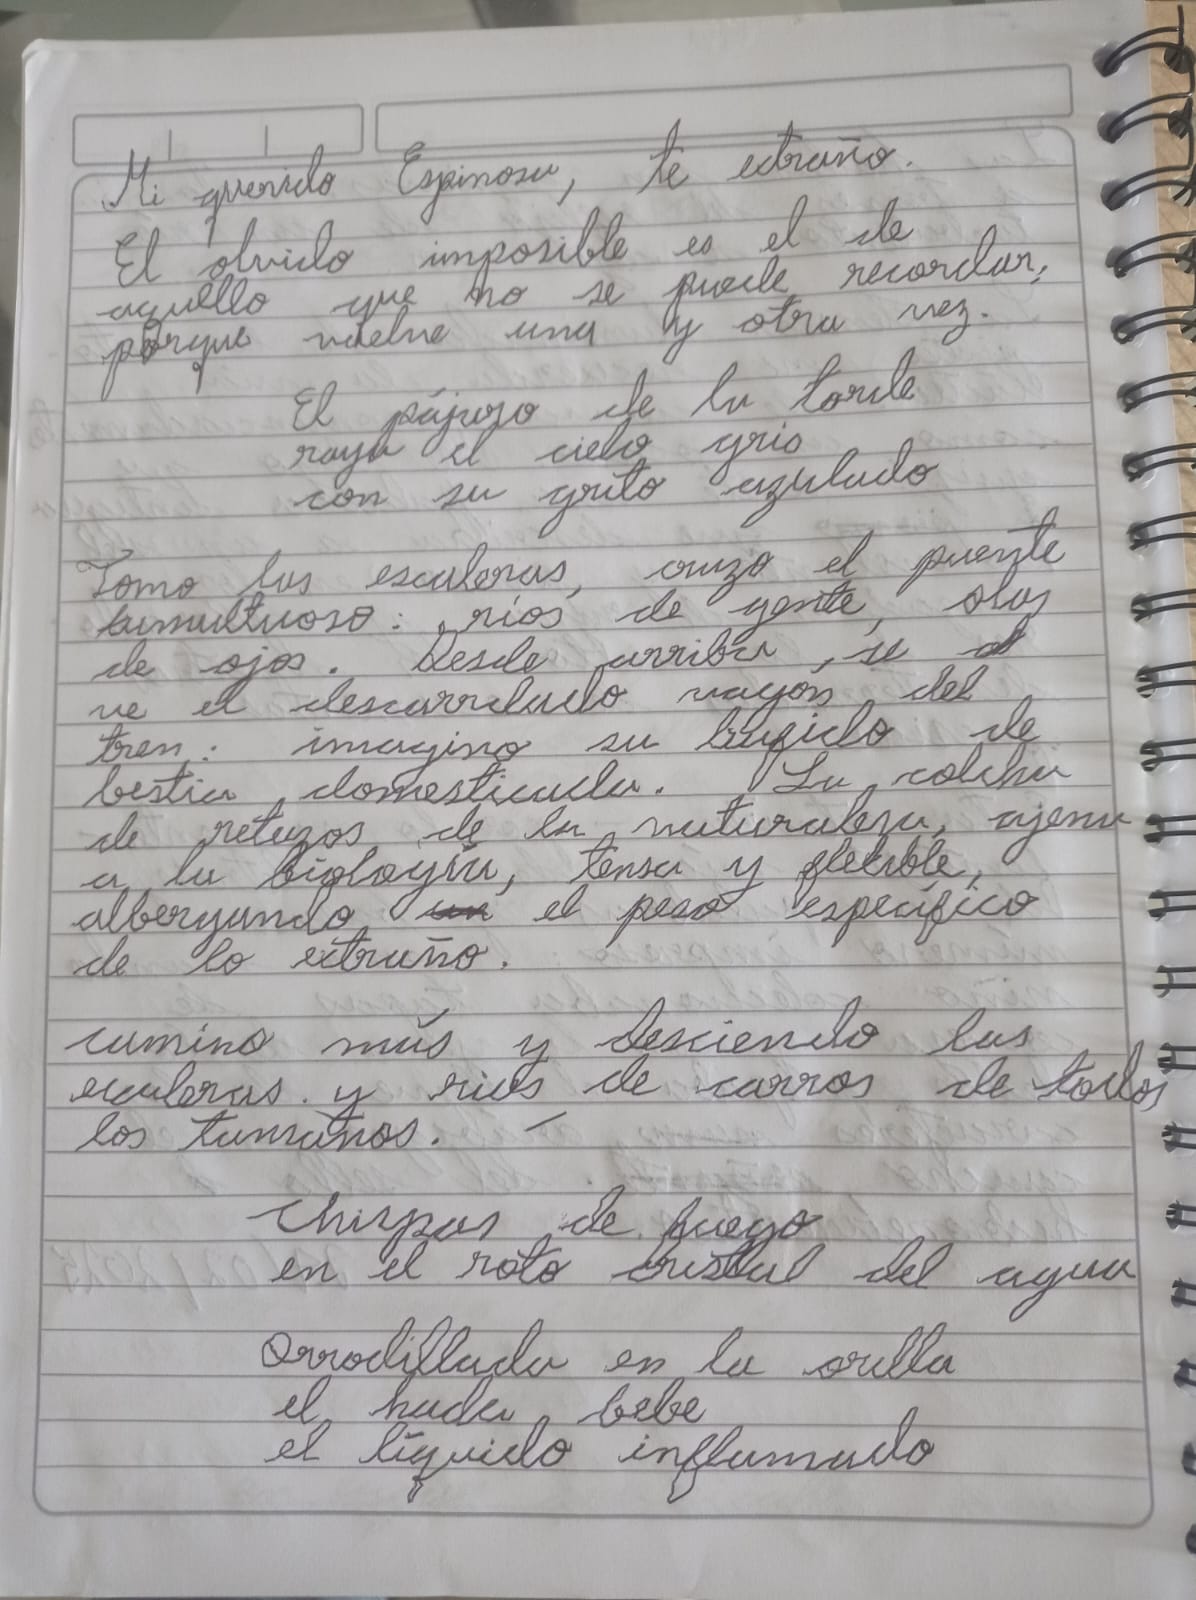 Mi querido Espinosa, te extraño.
El olvido imposible es el de
aquello que no se puede recordar,
porque vuelve una y otra vez.
El pájaro de la tarde
raya el cielo gris
con su grito azulado
Tomo las escaleras, cruzo el puente
tumultuoso: ríos de gente, olas
de ojos. Desde arriba, se
ve el descarrilado vagón del
tren: imagino su bufido de
bestia domesticada. La colcha
de retazos de la naturaleza, ajena
a la biología, tensa y flexible,
albergando el peso específico
de lo extraño.
camino más y desciendo las
escaleras y rios de carros de todos
los tamaños. —
Chispas de fuego
en el roto cristal del agua
Arrodillada en la orilla
el hada bebe
el líquido inflamado